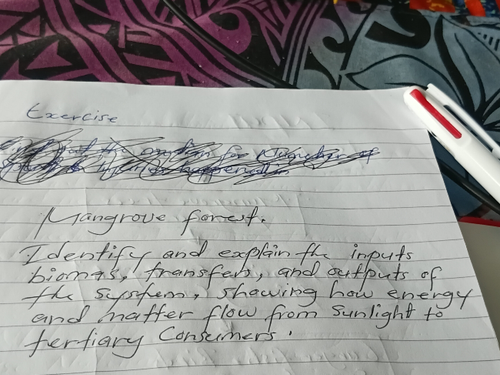 Exercise
Mangrove forest.
Identify and explain the inputs
biomas, transfers, and outputs of
the system, showing how energy
and matter flow from sunlight to
tertiary Consumers.